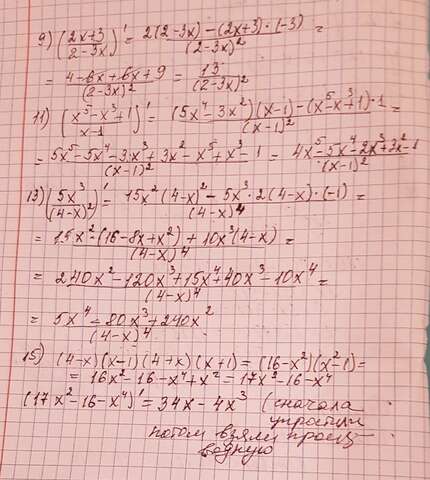 9) (2x+3 / 2-3x)' = 2(2-3x)-(2x+3)·(-3) / (2-3x)² =
= 4-6x+6x+9 / (2-3x)² = 13 / (2-3x)²
11) (x⁵-x³+1 / x-1)' = (5x⁴-3x²)(x-1)-(x⁵-x³+1)·1 / (x-1)² =
= 5x⁵-5x⁴-3x³+3x²-x⁵+x³-1 / (x-1)² = 4x⁵-5x⁴-2x³+3x²-1 / (x-1)²
13) (5x³ / (4-x)²)' = 15x²(4-x)²-5x³·2(4-x)·(-1) / (4-x)⁴ =
= 15x²(16-8x+x²)+10x³(4-x) / (4-x)⁴ =
= 240x²-120x³+15x⁴+40x³-10x⁴ / (4-x)⁴ =
= 5x⁴-80x³+240x² / (4-x)⁴
15) (4-x)(x-1)(4+x)(x+1) = (16-x²)(x²-1) =
= 16x²-16-x⁴+x² = 17x²-16-x⁴
(17x²-16-x⁴)' = 34x-4x³ (сначала
упростили
потом взяли произ-
водную